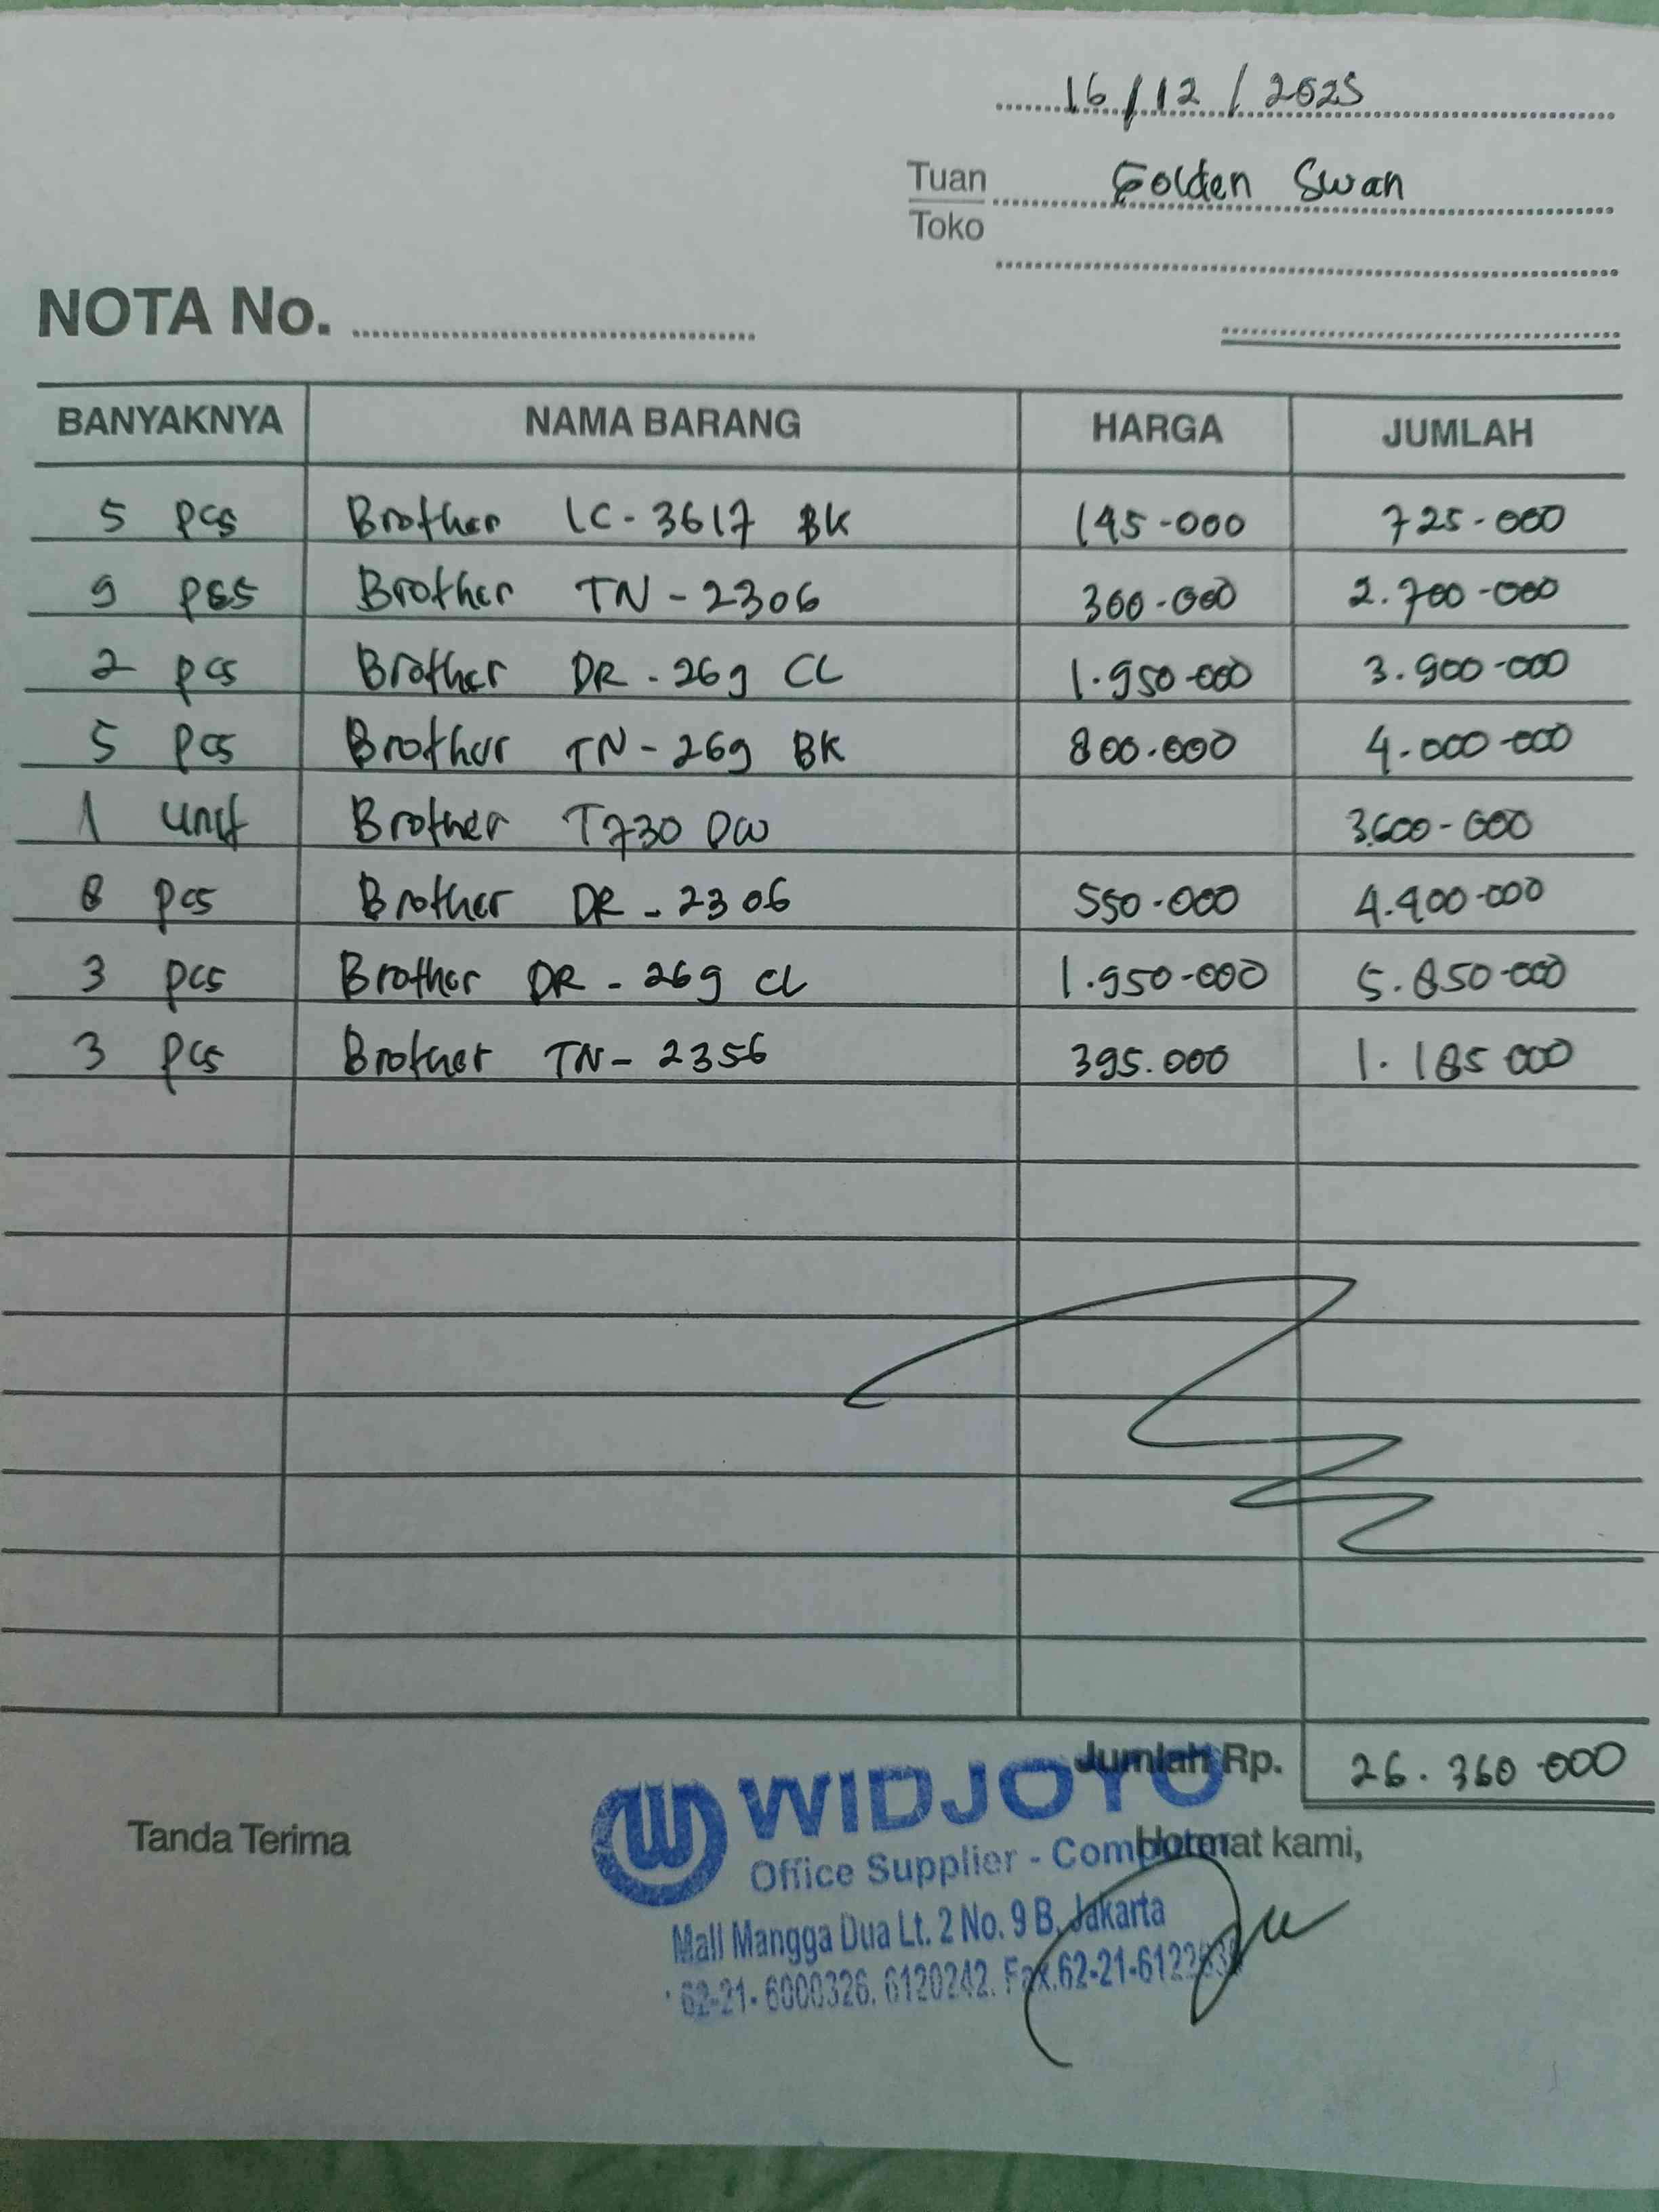 16/12/2025
Tuan Golden Swan
Toko
NOTA No.
BANYAKNYA NAMA BARANG HARGA JUMLAH
5 pcs Brother LC-3617 BK 145-000 725-000
9 pcs Brother TN-2306 300-000 2.700-000
2 pcs Brother DR-269 CL 1.950-000 3.900-000
5 pcs Brother TN-269 BK 800.000 4.000-000
1 unit Brother T730 DW 3.600-000
8 pcs Brother DR-2306 550-000 4.400-000
3 pcs Brother DR-269 CL 1.950-000 5.850-000
3 pcs Brother TN-2356 395.000 1.185 000
Jumlah Rp. 26.360-000
Tanda Terima
Hormat kami,
WIDJOYO
Office Supplier - Computer
Mall Mangga Dua Lt. 2 No. 9 B, Jakarta
62-21-6000326. 6120242. Fax.